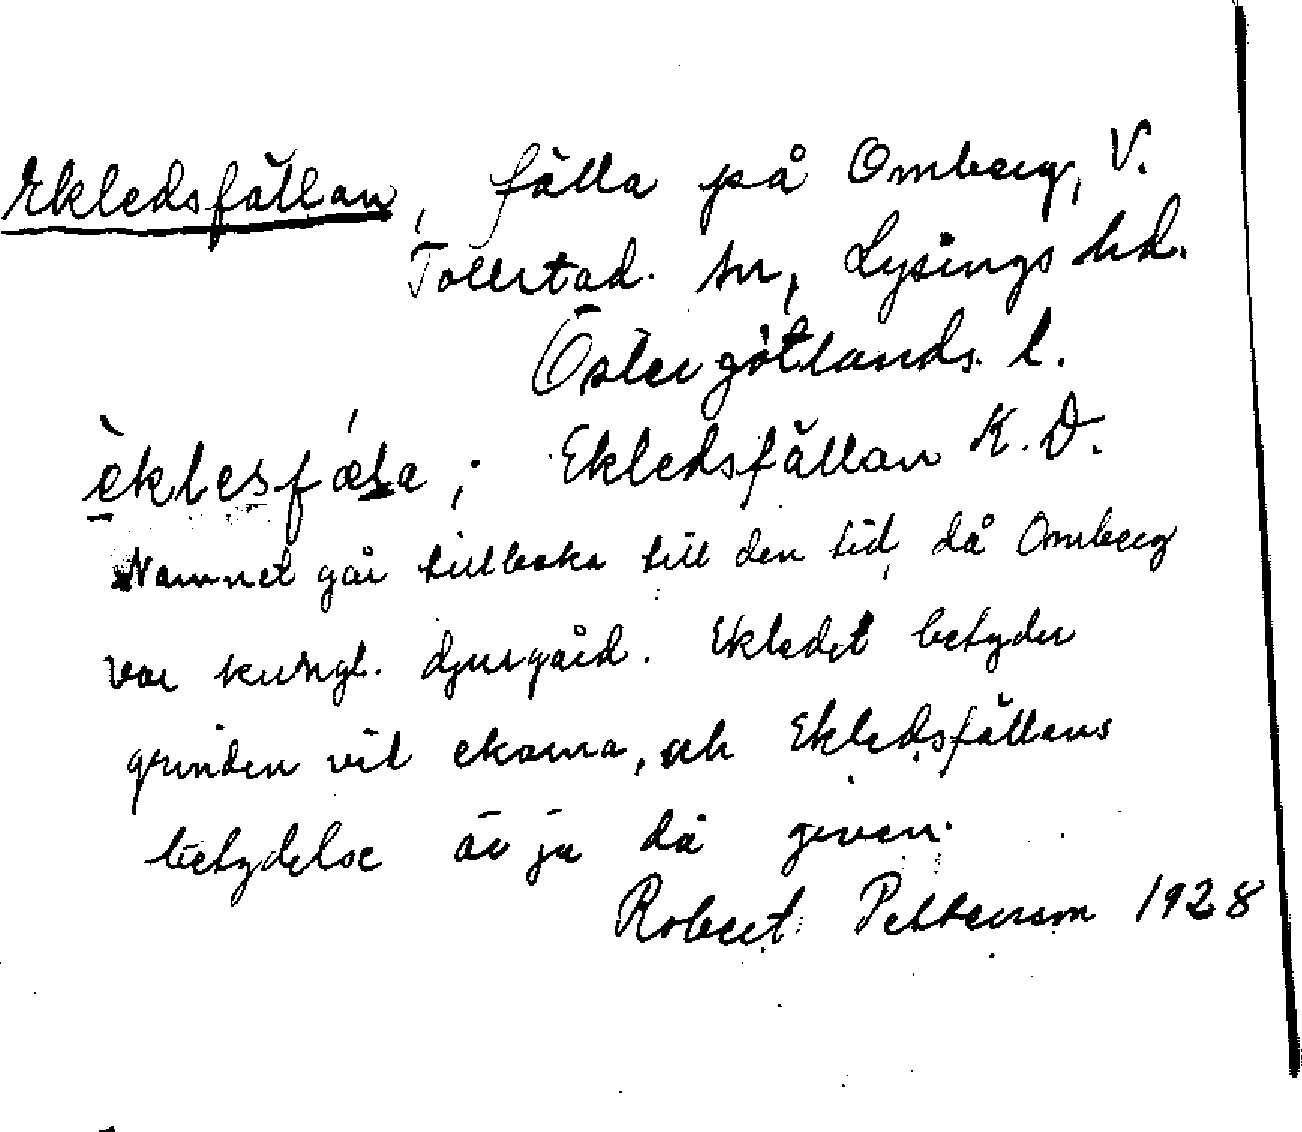 Ekledsfällan, fälla på Omberg, V.
Tollstad sn, Lysings hd.
Östergötlands l.
èklesfǽla; Ekledsfällan K.D.
Namnet går tillbaka till den tid, då Omberg
var kungl. djurgård. Ekledet betyder
grinden vid ekarna, och Ekledsfällans
betydelse är ju då given.
Robert Pettersson 1928